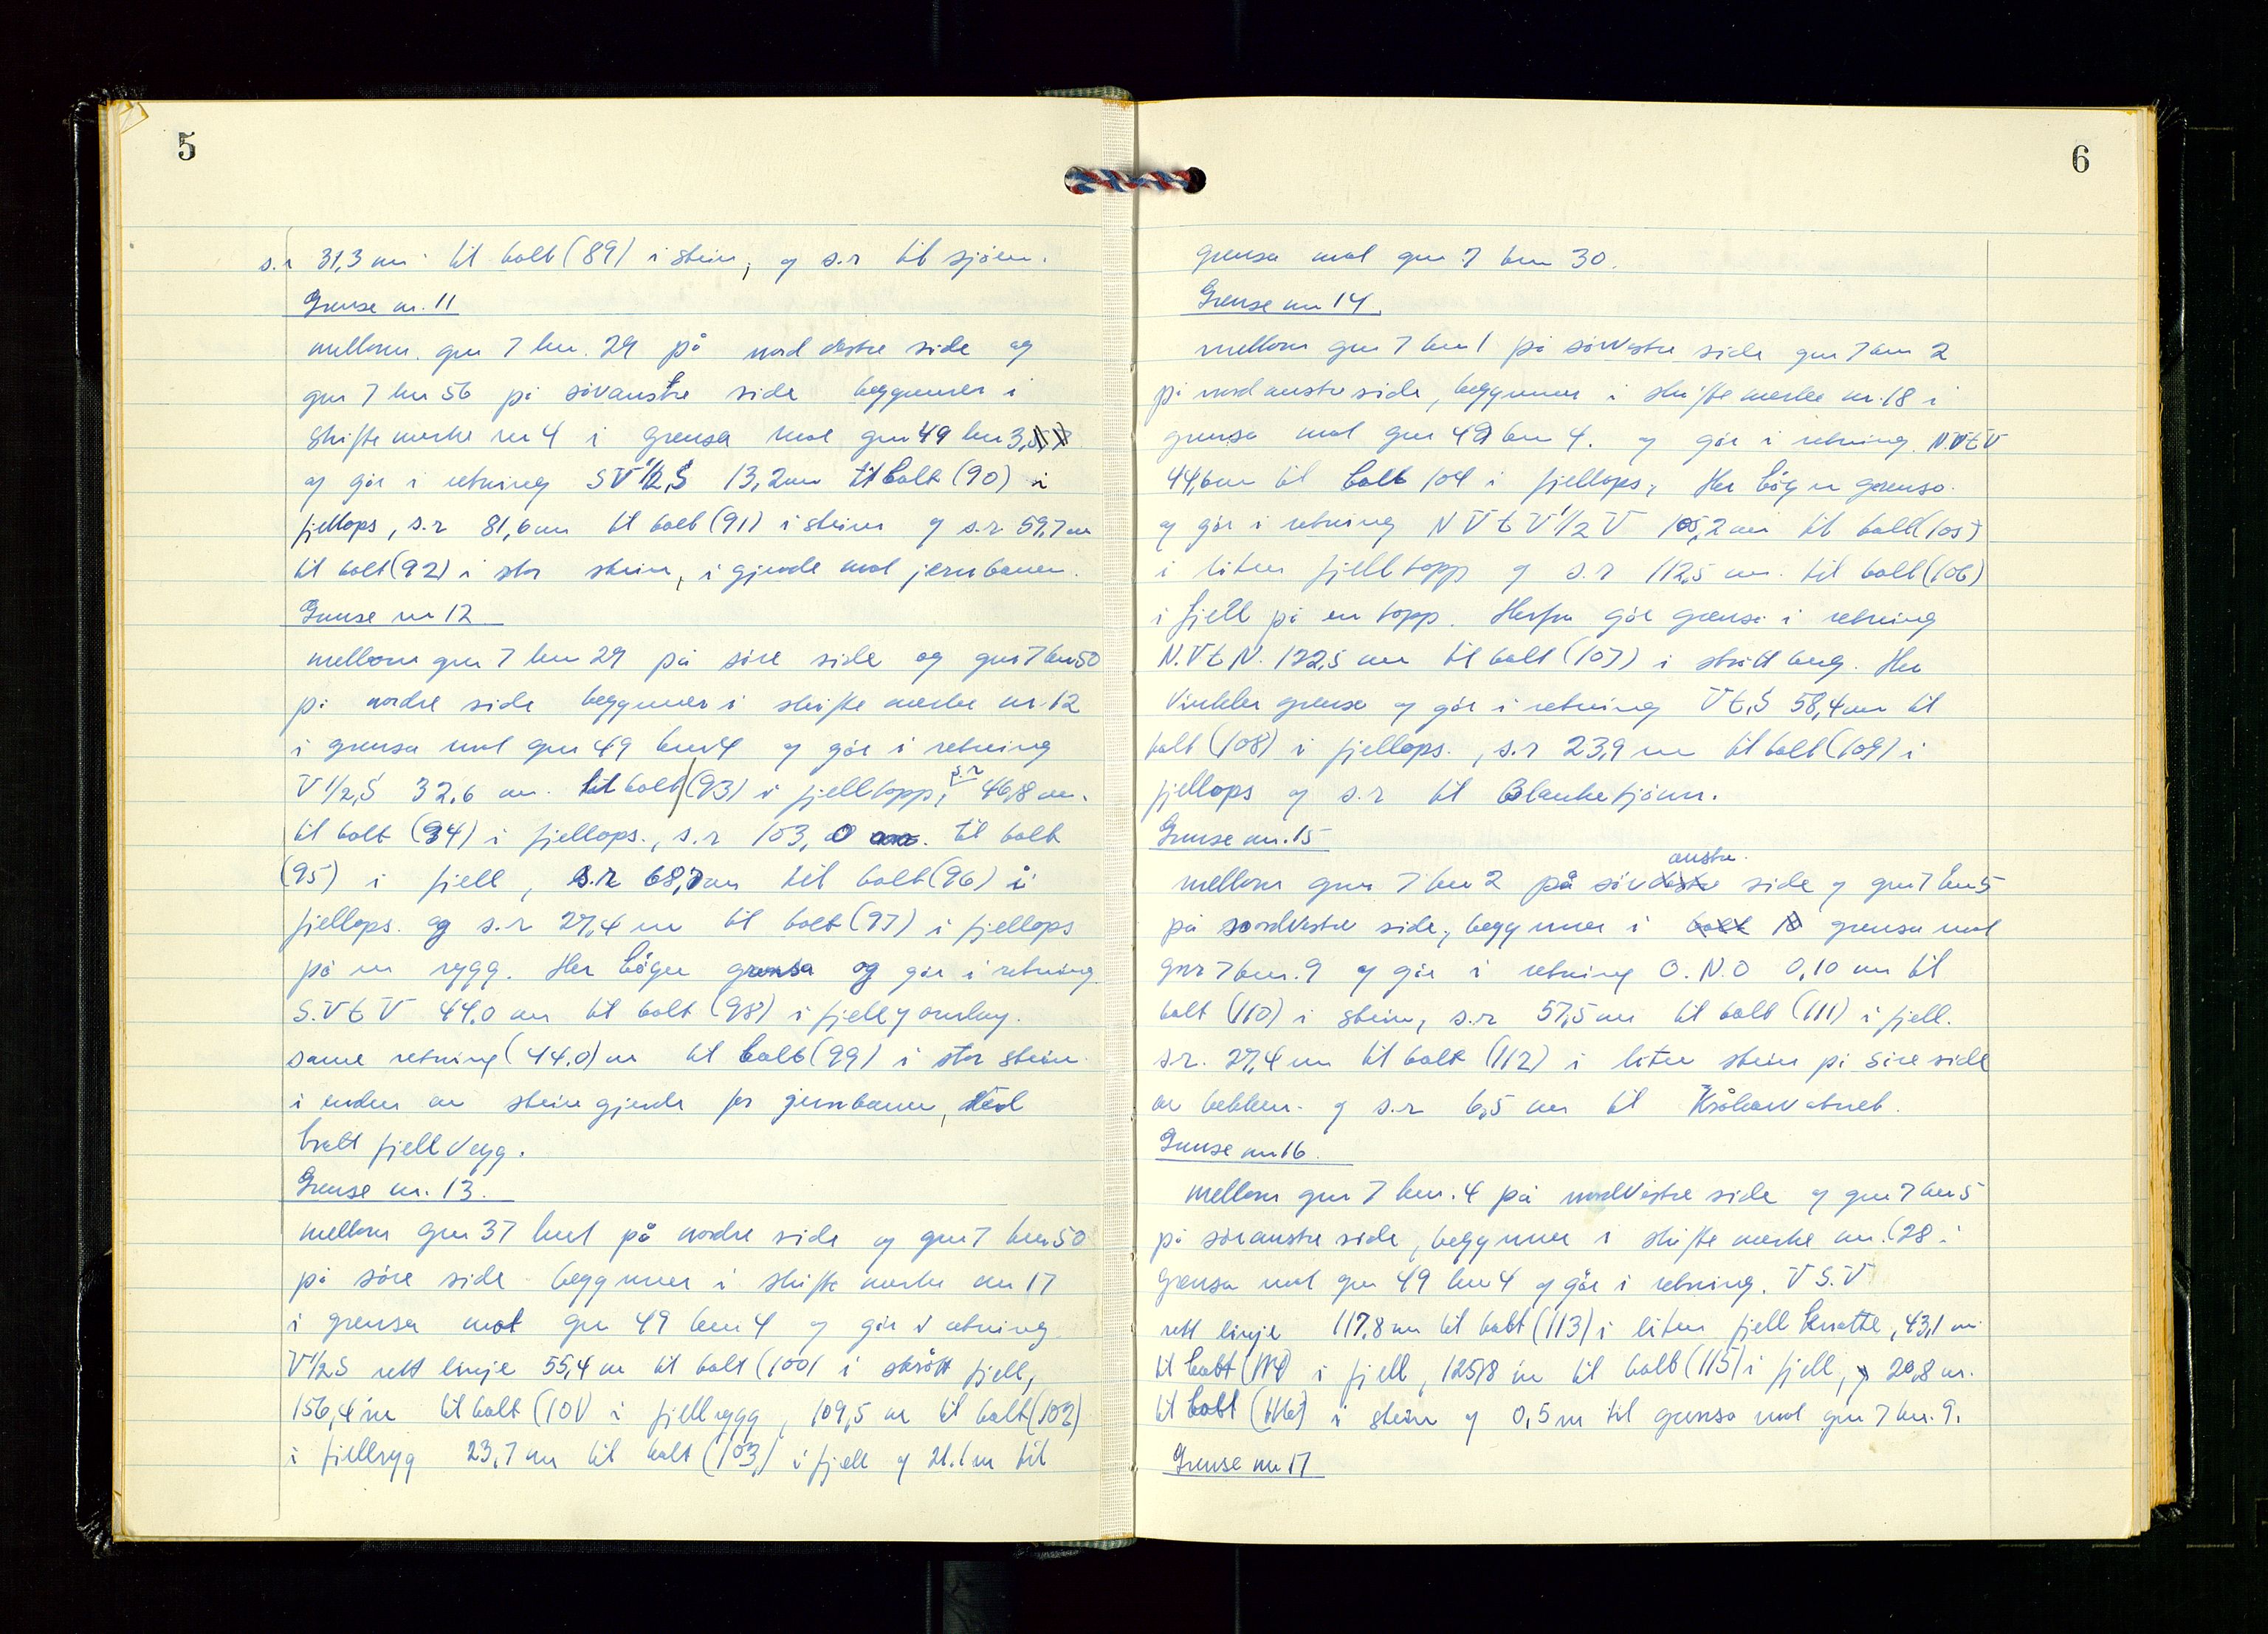 5
s.r 31,3 m til bolt (89) i stein, og s.r til sjøen.
Grense nr. 11
mellom gnr 7 bnr. 29 på nordvestre side og
gnr 7 bnr 56 på søraustre side begynner i
skiftemerke nr 4 i grensa mot gnr 49 bnr 3,
og går i retning SV 1/2 S 13,2 m til bolt (90) i
fjellops, s.r 81,6 m til bolt (91) i stein og s.r 59,7 m
til bolt (92) i stor stein, i gjerde mot jernbanen.
Grense nr 12
mellom gnr 7 bnr 29 på søre side og gnr 7 bnr 50
på nordre side begynner i skiftemerke nr. 12
i grensa mot gnr 49 bnr 4 og går i retning
V 1/2 S 32,6 m. til bolt (93) i fjelltopp, s.r 46,8 m.
til bolt (94) i fjellops., s.r 103,0 m. til bolt
(95) i fjell, s.r 68,7 m til bolt (96) i
fjellops. og s.r 27,4 m til bolt (97) i fjellops
på en rygg. Her bøger grensa og går i retning
S.V t V 44,0 m til bolt (98) i fjell
same retning (44.0) m til bolt (99) i stor stein
i enden av steingjerde for jernbanen, ved
bratt fjellvegg.
Grense nr. 13.
mellom gnr 37 bnr 1 på nordre side og gnr 7 bnr 50
på søre side begynner i skiftemerke nr 17
i grensa mot gnr 49 bnr 4 og går i retning
V 1/2 S rett linje 55,4 m til bolt (100) i skrått fjell,
156,4 m til bolt (101) i fjellrygg, 109,5 m til bolt (102)
i fjellryg 23,7 m til bolt (103) i fjell og 21.1 m til
6
grensa mot gnr 7 bnr 30.
Grense nr 14.
mellom gnr 7 bnr 1 på sørvestre side gnr 7 bnr 2
på nordaustre side, begynner i skiftemerke nr. 18 i
grensa mot gnr 49 bnr 4. og går i retning N.V t V
44,6 m til bolt 104 i fjellops, Her bøger grensa
og går i retning N V t V 1/2 V 105,2 m til bolt (105)
i liten fjelltopp og s.r 112,5 m. til bolt (106)
i fjell på en topp. Herfra går grensa i retning
N.V t N. 122,5 m til bolt (107) i skrått berg. Her
vinkler grensa og går i retning V t S 58,4 m til
bolt (108) i fjellops., s.r 23,9 m til bolt (109) i
fjellops og s.r til Blanketjønn.
Grense nr. 15
mellom gnr 7 bnr 2 på søraustre side og gnr 7 bnr 5
på nordvestre side, begynner i grensa mot
gnr 7 bnr. 9 og går i retning O.N.O 0,10 m til
bolt (110) i stein, s.r 57,5 m til bolt (111) i fjell.
s.r. 27,4 m til bolt (112) i liten stein på søre side
av bekken og s.r 6,5 m til Kråkevatnet.
Grense nr 16.
mellom gnr 7 bnr. 4 på nordvestre side og gnr 7 bnr 5
på søraustre side, begynner i skiftemerke nr. (28 i
grensa mot gnr 49 bnr 4 og går i retning. V S.V
rett linje 117,8 m til bolt (113) i liten fjell knatte, 43,1 m
til bolt (114) i fjell, 125,8 m til bolt (115) i fjell, og 20,8 m.
til bolt (116) i stein og 0,5 m til grensa mot gnr 7 bnr. 9.
Grense nr 17